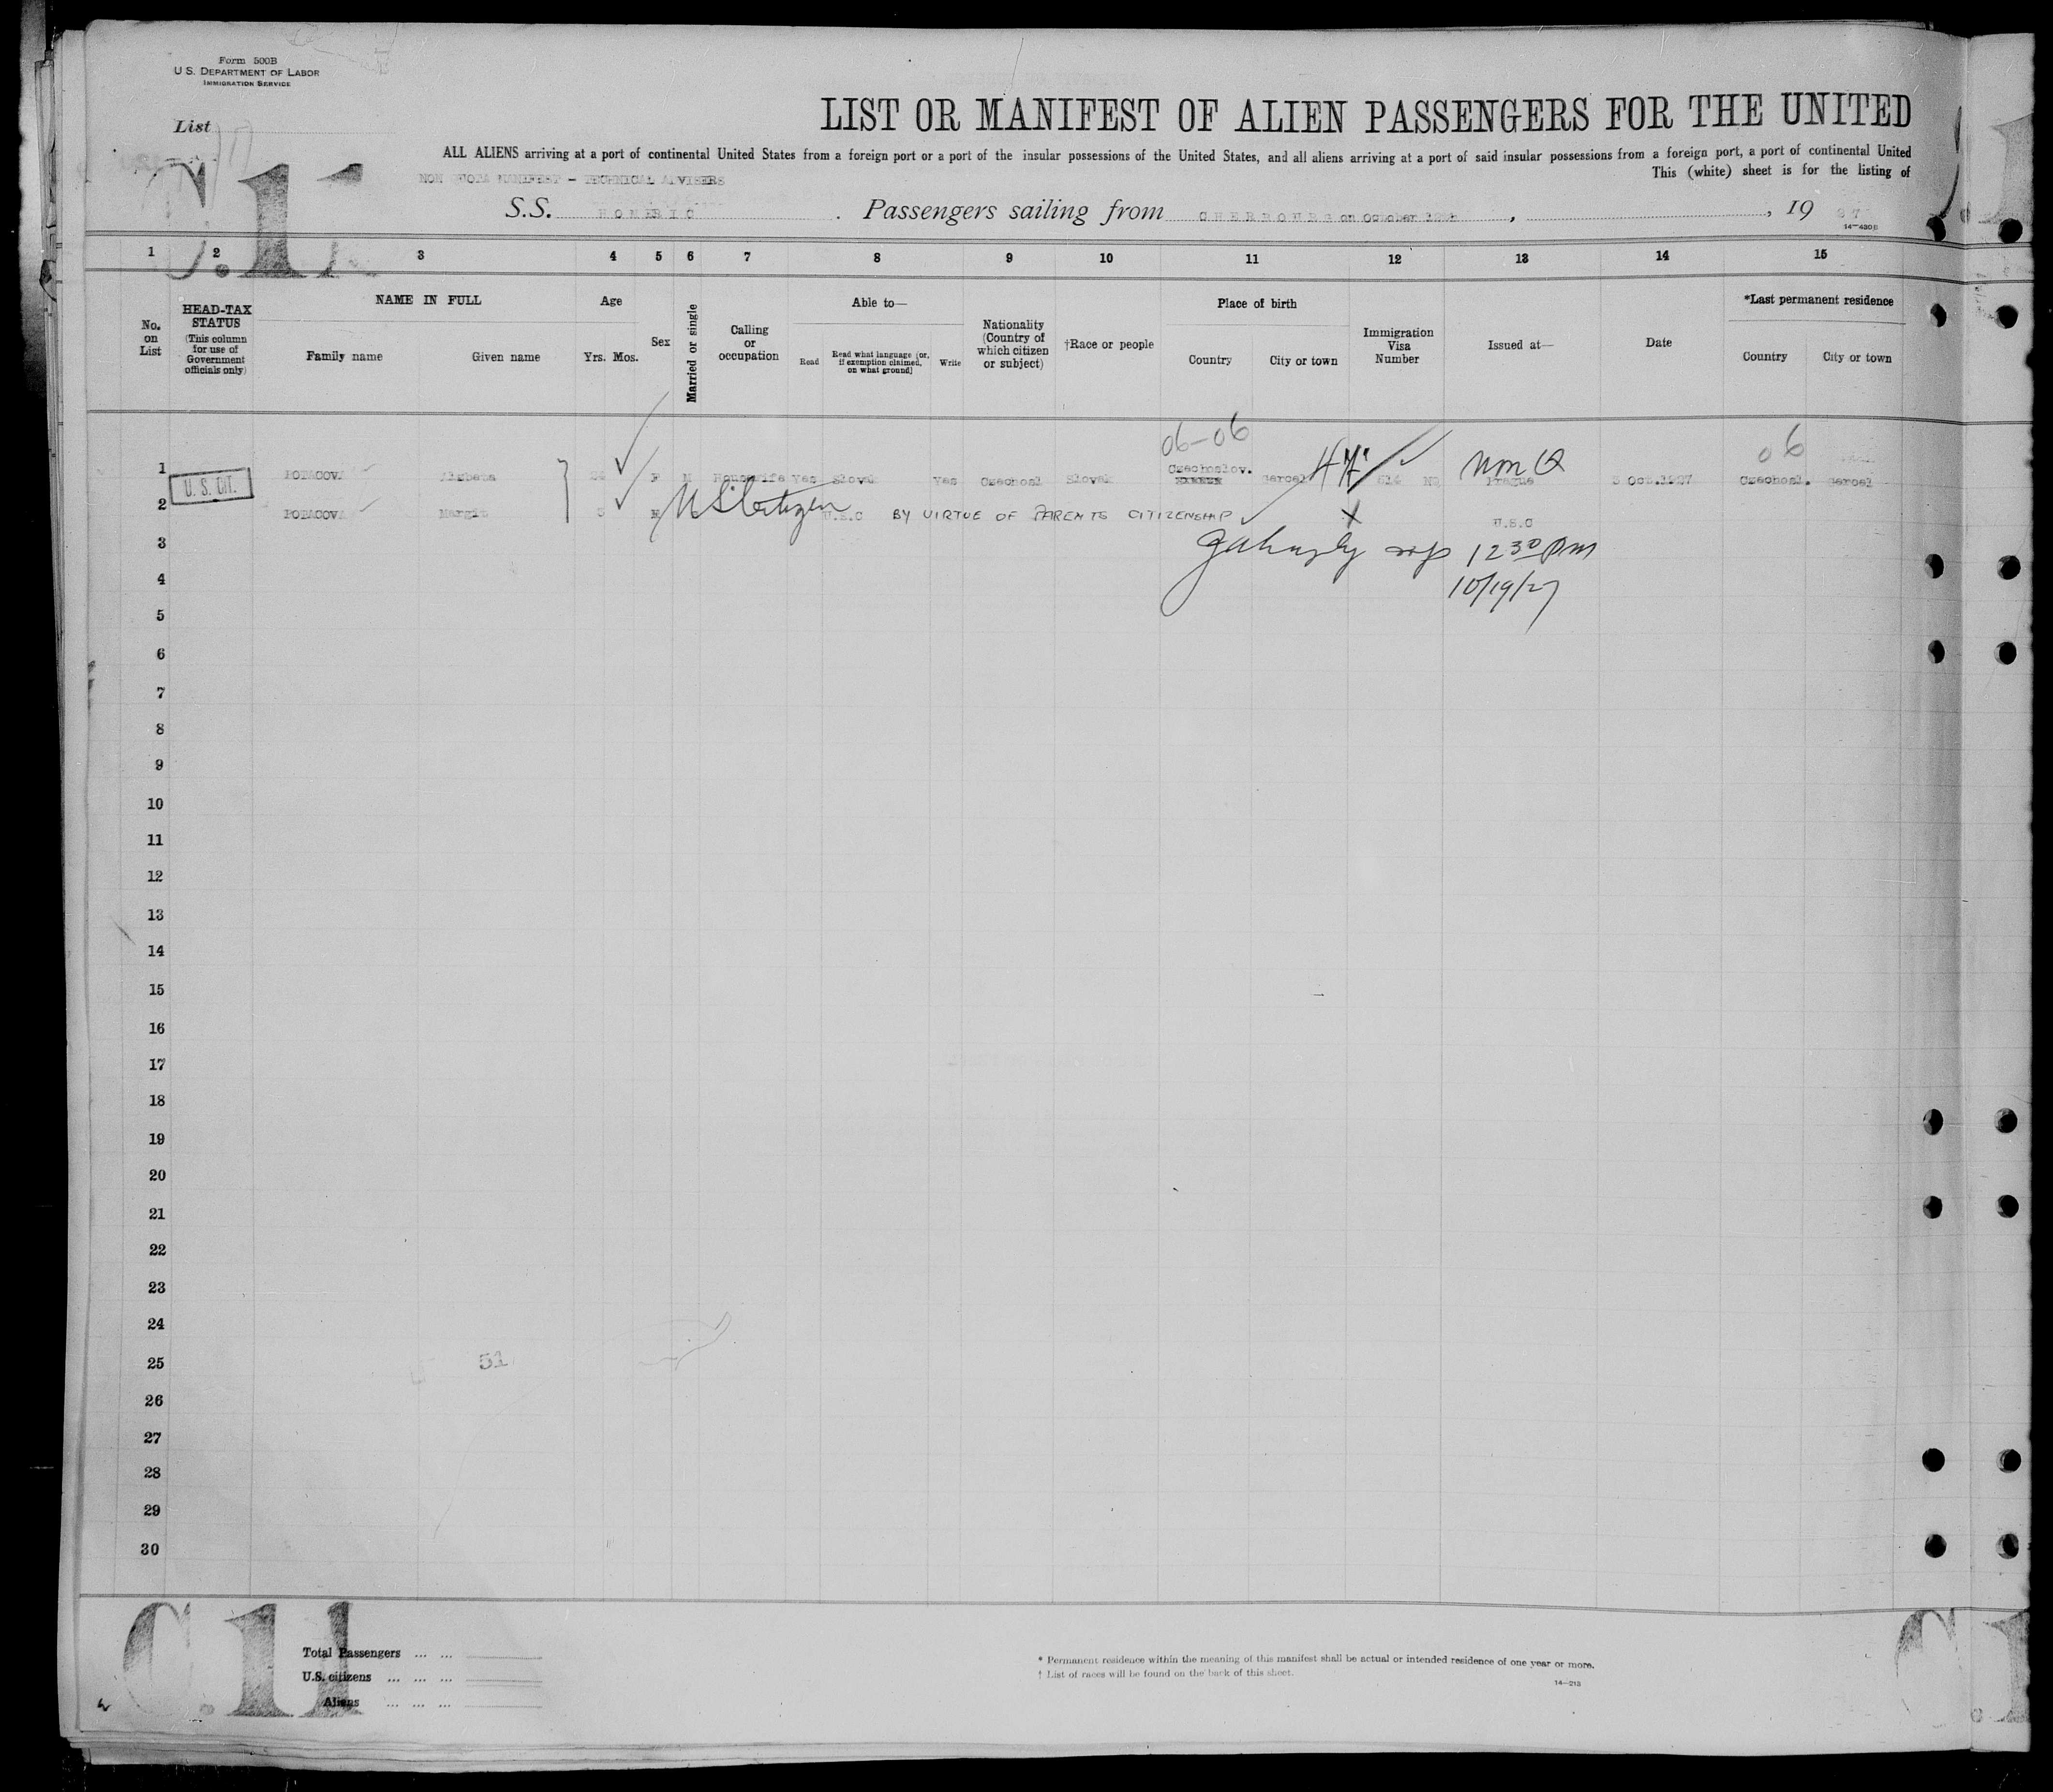 Form 500B
U.S. DEPARTMENT OF LABOR
IMMIGRATION SERVICE
List
C.11
LIST OR MANIFEST OF ALIEN PASSENGERS FOR THE UNITED
ALL ALIENS arriving at a port of continental United States from a foreign port or a port of the insular possessions of the United States, and all aliens arriving at a port of said insular possessions from a foreign port, a port of continental United
This (white) sheet is for the listing of
NON QUOTA MANIFEST - TECHNICAL ADVISERS
S.S. HOMERIC. Passengers sailing from CHERBOURG on October, , 19 27
14-430B
1 2 3 4 5 6 7 8 9 10 11 12 13 14 15
No. on List
HEAD-TAX STATUS (This column for use of Government officials only)
NAME IN FULL
Family name Given name
Age
Yrs. Mos.
Sex
Married or single
Calling or occupation
Able to—
Read Read what language (or, if exemption claimed, on what ground) Write
Nationality (Country of which citizen or subject)
†Race or people
Place of birth
Country City or town
Immigration Visa Number
Issued at—
Date
*Last permanent residence
Country City or town
06-06 06
1 Alzbeta F M Housewife Yes Slovak Yes Czechosl Slovak Czechoslov. Non Q Prague 3 Oct.1927 Czechosl.
U. S. CIT.
2 Margit F US Citizen U.S.C BY VIRTUE OF PARENTS CITIZENSHIP X U.S.C
3 12 30 pm
4 10/19/27
5
6
7
8
9
10
11
12
13
14
15
16
17
18
19
20
21
22
23
24
25 51
26
27
28
29
30
C.11
Total Passengers ... ...
U.S. citizens ... ... ...
Aliens ... ... ...
* Permanent residence within the meaning of this manifest shall be actual or intended residence of one year or more.
† List of races will be found on the back of this sheet.
14-213